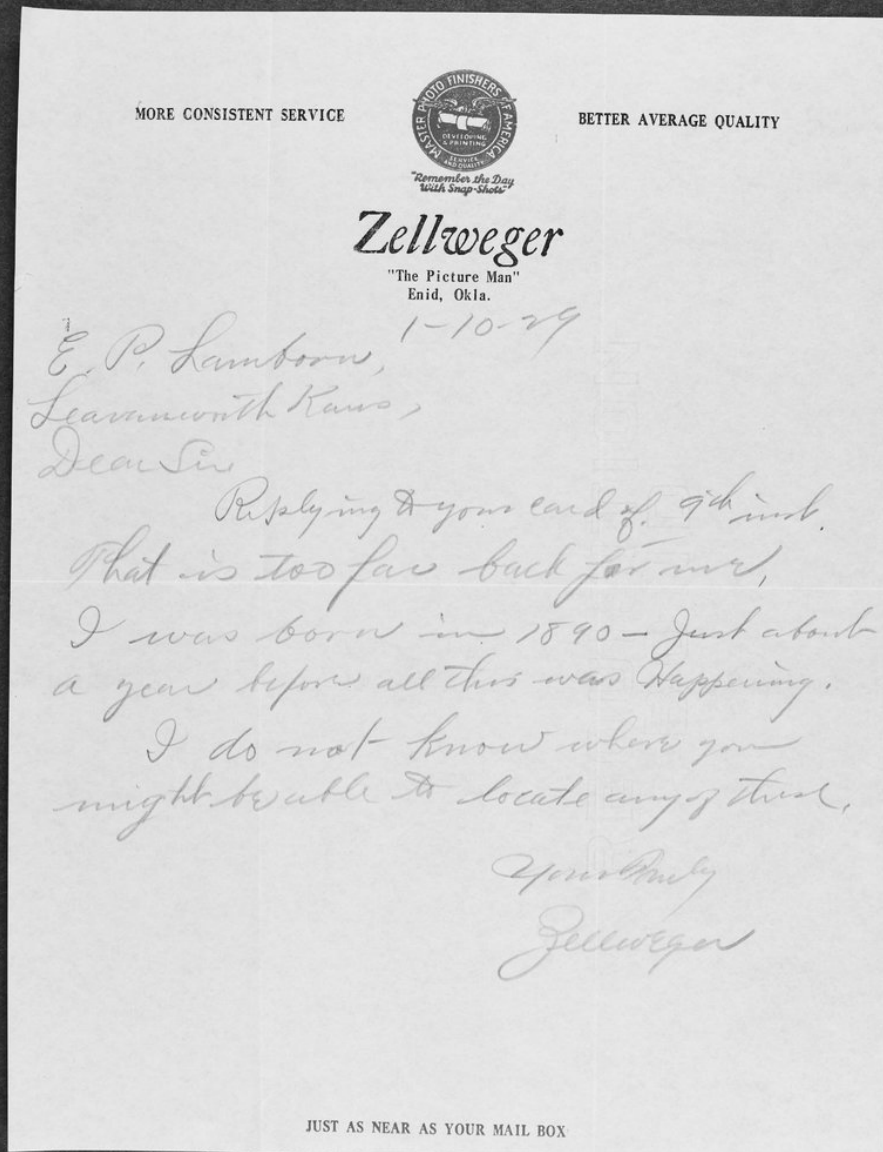 MORE CONSISTENT SERVICE
MASTER PHOTO FINISHERS OF AMERICA
DEVELOPING
& PRINTING
SERVICE
AND QUALITY
"Remember the Day
With Snap-Shots"
BETTER AVERAGE QUALITY
Zellweger
"The Picture Man"
Enid, Okla.
1-10-29
E. P. Lamborn,
Leavenworth Kans,
Dear Sir
Replying to your card of 9th inst.
That is too far back for me,
I was born in 1890 - Just about
a year before all this was Happening.
I do not know where you
might be able to locate any of these.
Yours Truly
Zellweger
JUST AS NEAR AS YOUR MAIL BOX